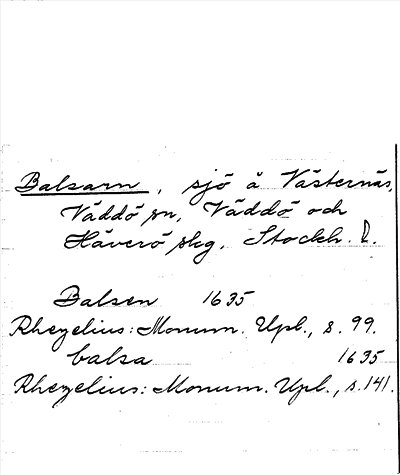 Balsarn, sjö å Västernäs,
Väddö sn, Väddö och
Häverö skg, Stockh. l.
Balsen 1635
Rhezelius: Monum. Upl., s. 99.
balsa 1635
Rhezelius: Monum. Upl., s. 141.